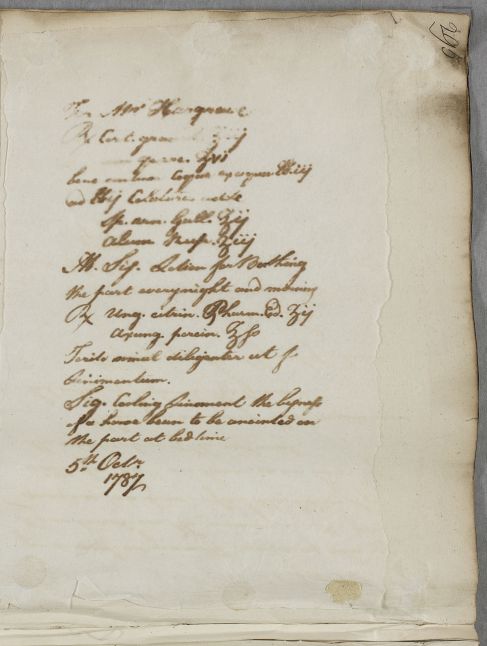 For Mr Hargrave
℞ Cort. ʒij
querc. ʒvi
bene coque ex aquae ℔iij
ad ℔ij Colaturae adde
Sp. vin. Gall. ℥ij
Alum. rup. ʒiij
M. Sig. Lotion for Bathing
the part every night and morning
℞ Ung. citrin. Pharm. Ed. ʒij
axung. porcin. ℥ss
Terito simul diligenter ut f.
Linimentum.
Sig. Cooling Liniment the bigness
of a horse bean to be anointed on
the part at bedtime
5th Octr.
1787